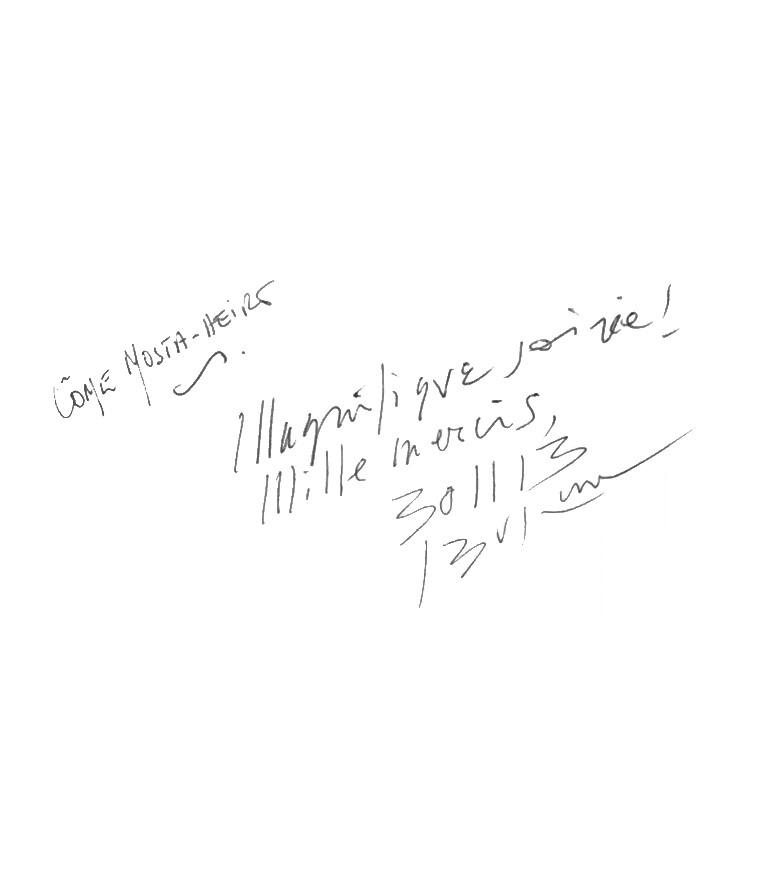 CÔME MOSTA-HEIRT
Magnifique soirée!
Mille mercis,
301113